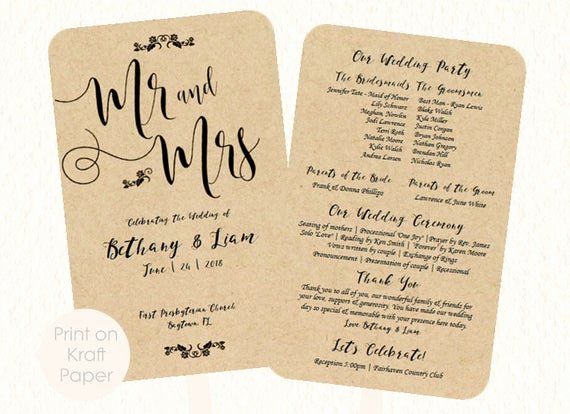 Mr and
Mrs
Celebrating the Wedding of
Bethany & Liam
June | 24 | 2018
First Presbyterian Church
Baytown, FL
Print on
Kraft
Paper
Our Wedding Party
The Bridesmaids The Groomsmen
Jennifer Tate - Maid of Honor
Lily Schwarz
Meghan Nowlin
Jodi Lawrence
Terri Roth
Natalie Moore
Kylie Walch
Andrea Larsen
Best Man - Ryan Lewis
Blake Walker
Kyle Miller
Justin Corgan
Bryan Johnson
Nathan Gregory
Brendan High
Nicholas Ryan
Parents of the Bride
Frank & Donna Phillips
Parents of the Groom
Lawrence & June White
Our Wedding Ceremony
Seating of mothers | Processional "One Joy" | Prayer by Rev. James
Solo "Love" | Reading by Ken Smith | "Forever" by Karen Moore
Vows written by couple | Exchange of Rings
Pronouncement | Presentation of couple | Recessional
Thank You
Thank you to all of you, our wonderful family & friends for
your love, support & generosity. You have made our wedding
day so special & memorable with your presence here today.
Love Bethany & Liam
Let's Celebrate!
Reception 5:00pm | Fairhaven Country Club